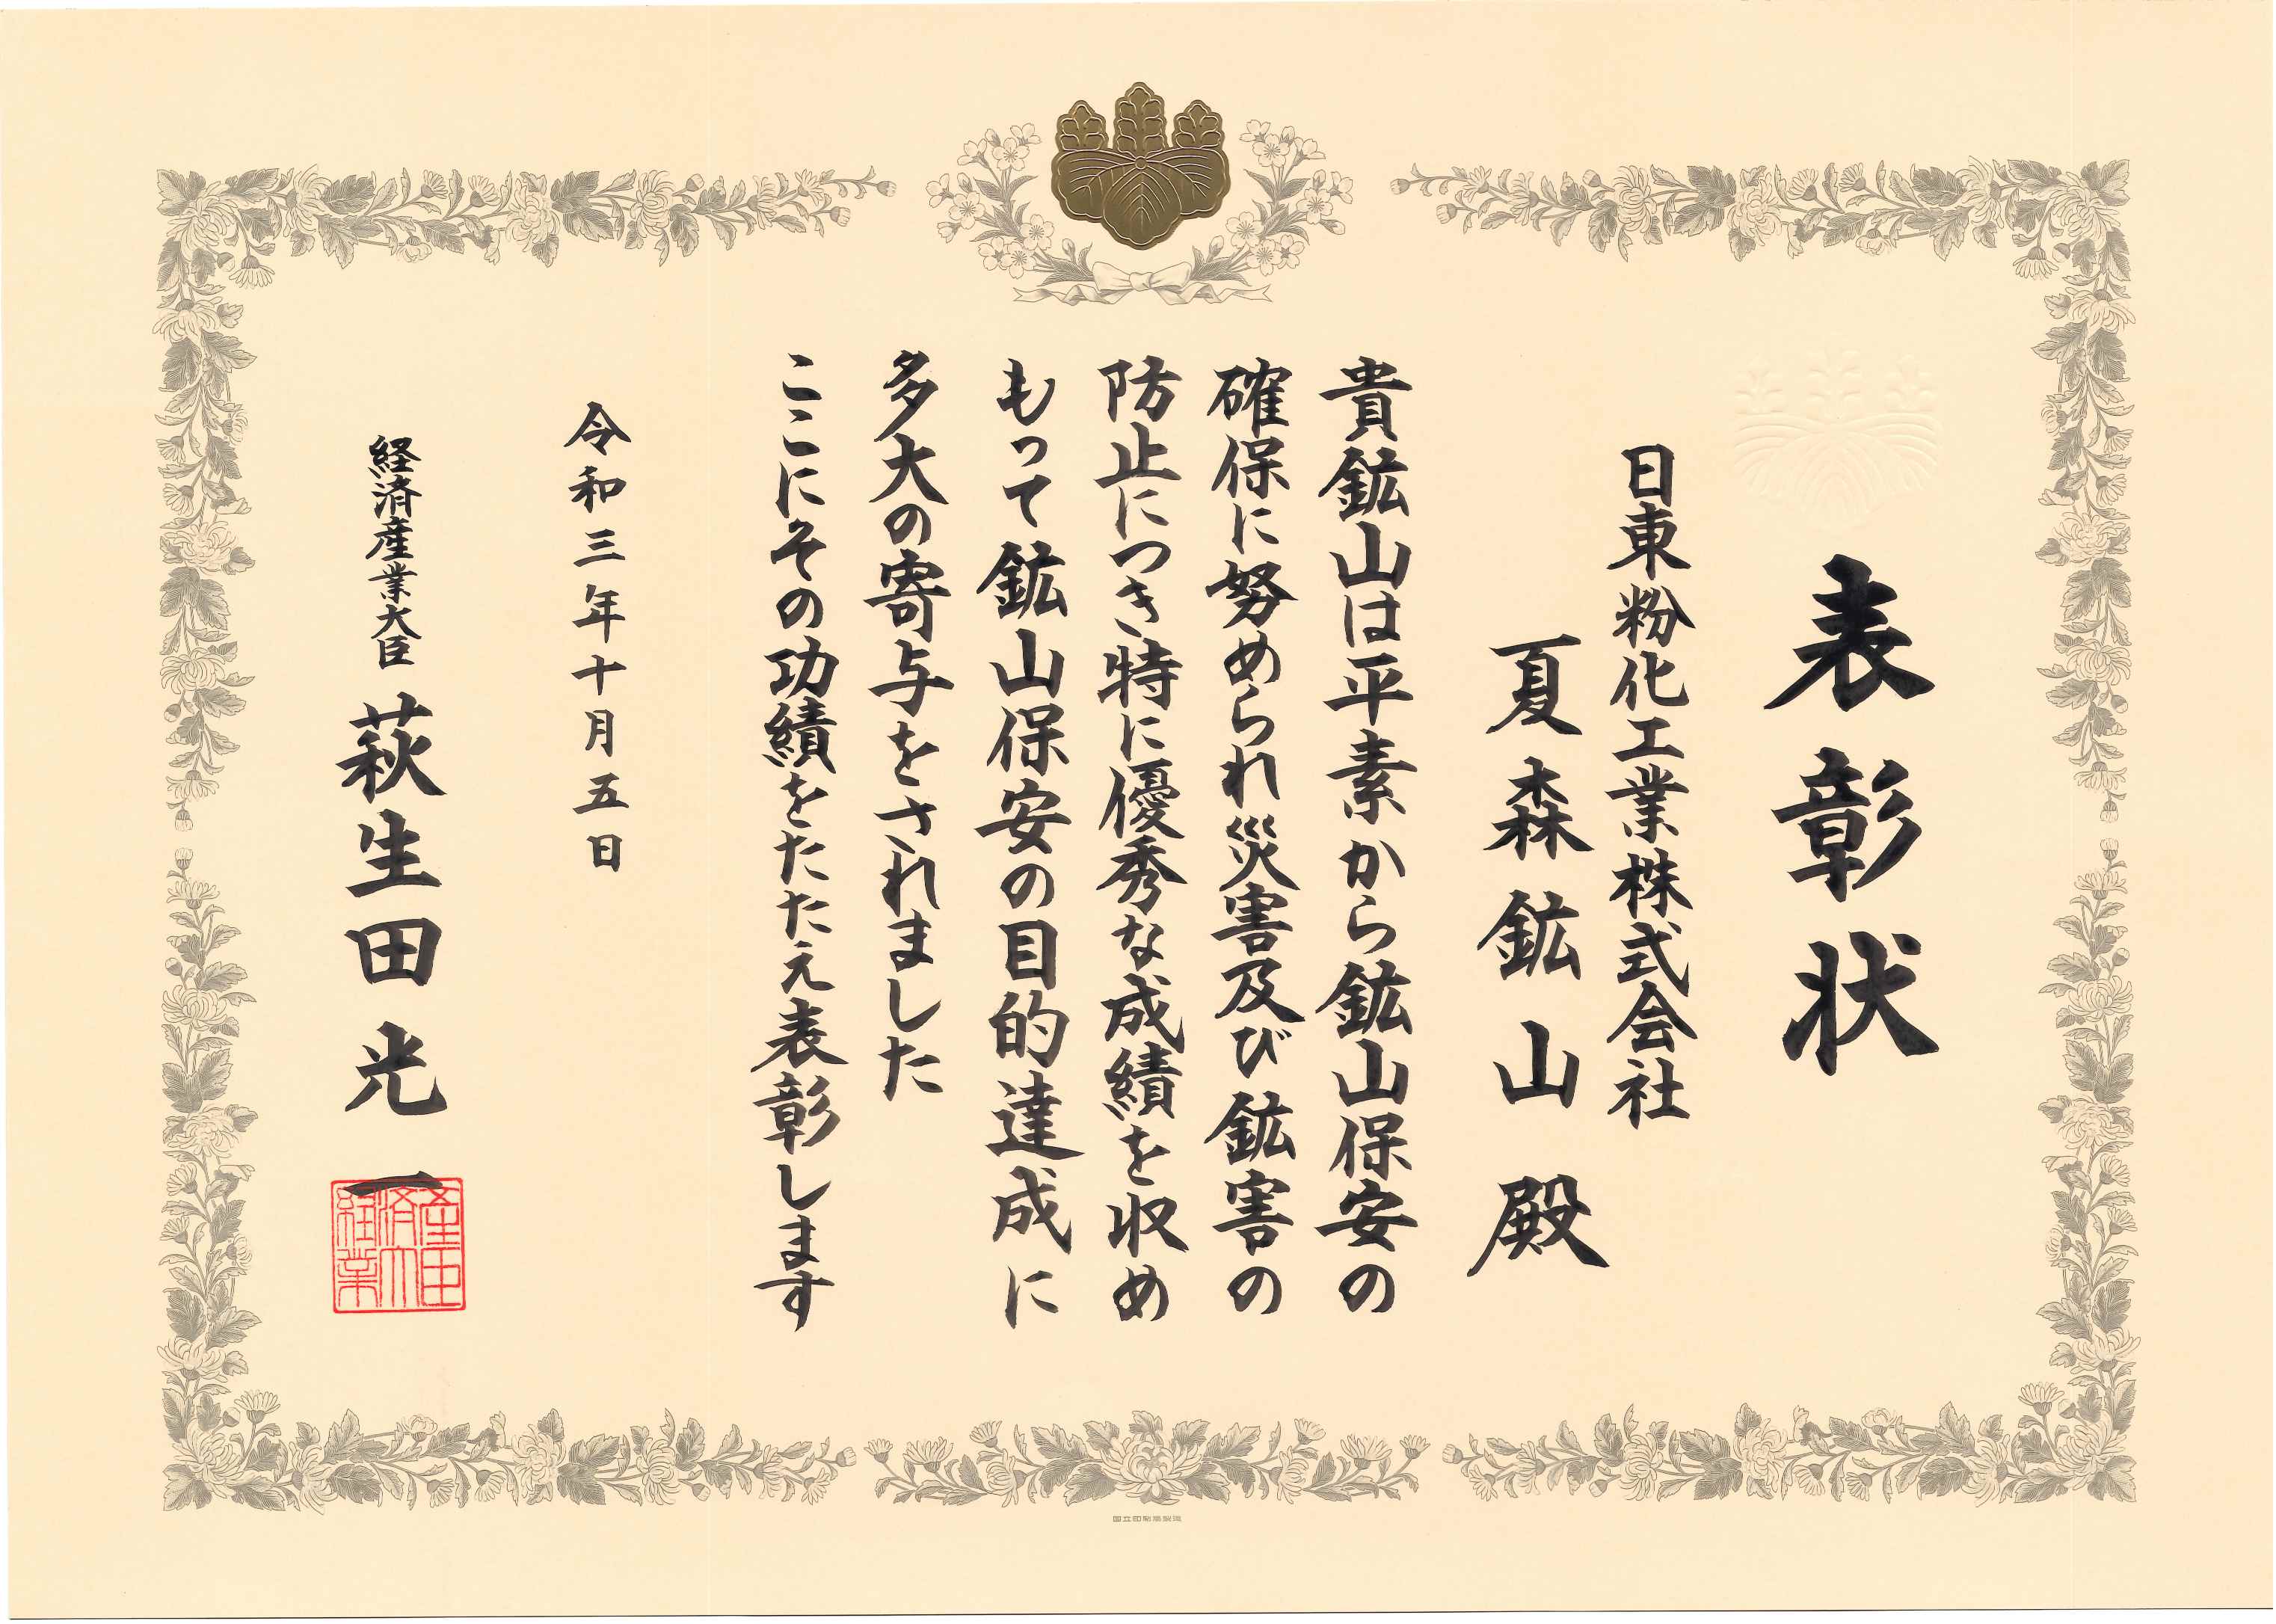 表彰状
日東粉化工業株式会社
夏森鉱山殿
貴鉱山は平素から鉱山保安の
確保に努められ災害及び鉱害の
防止につき特に優秀な成績を収め
もって鉱山保安の目的達成に
多大の寄与をされました
ここにその功績をたたえ表彰します
令和三年十月五日
経済産業大臣 萩生田光一
国立印刷局製造